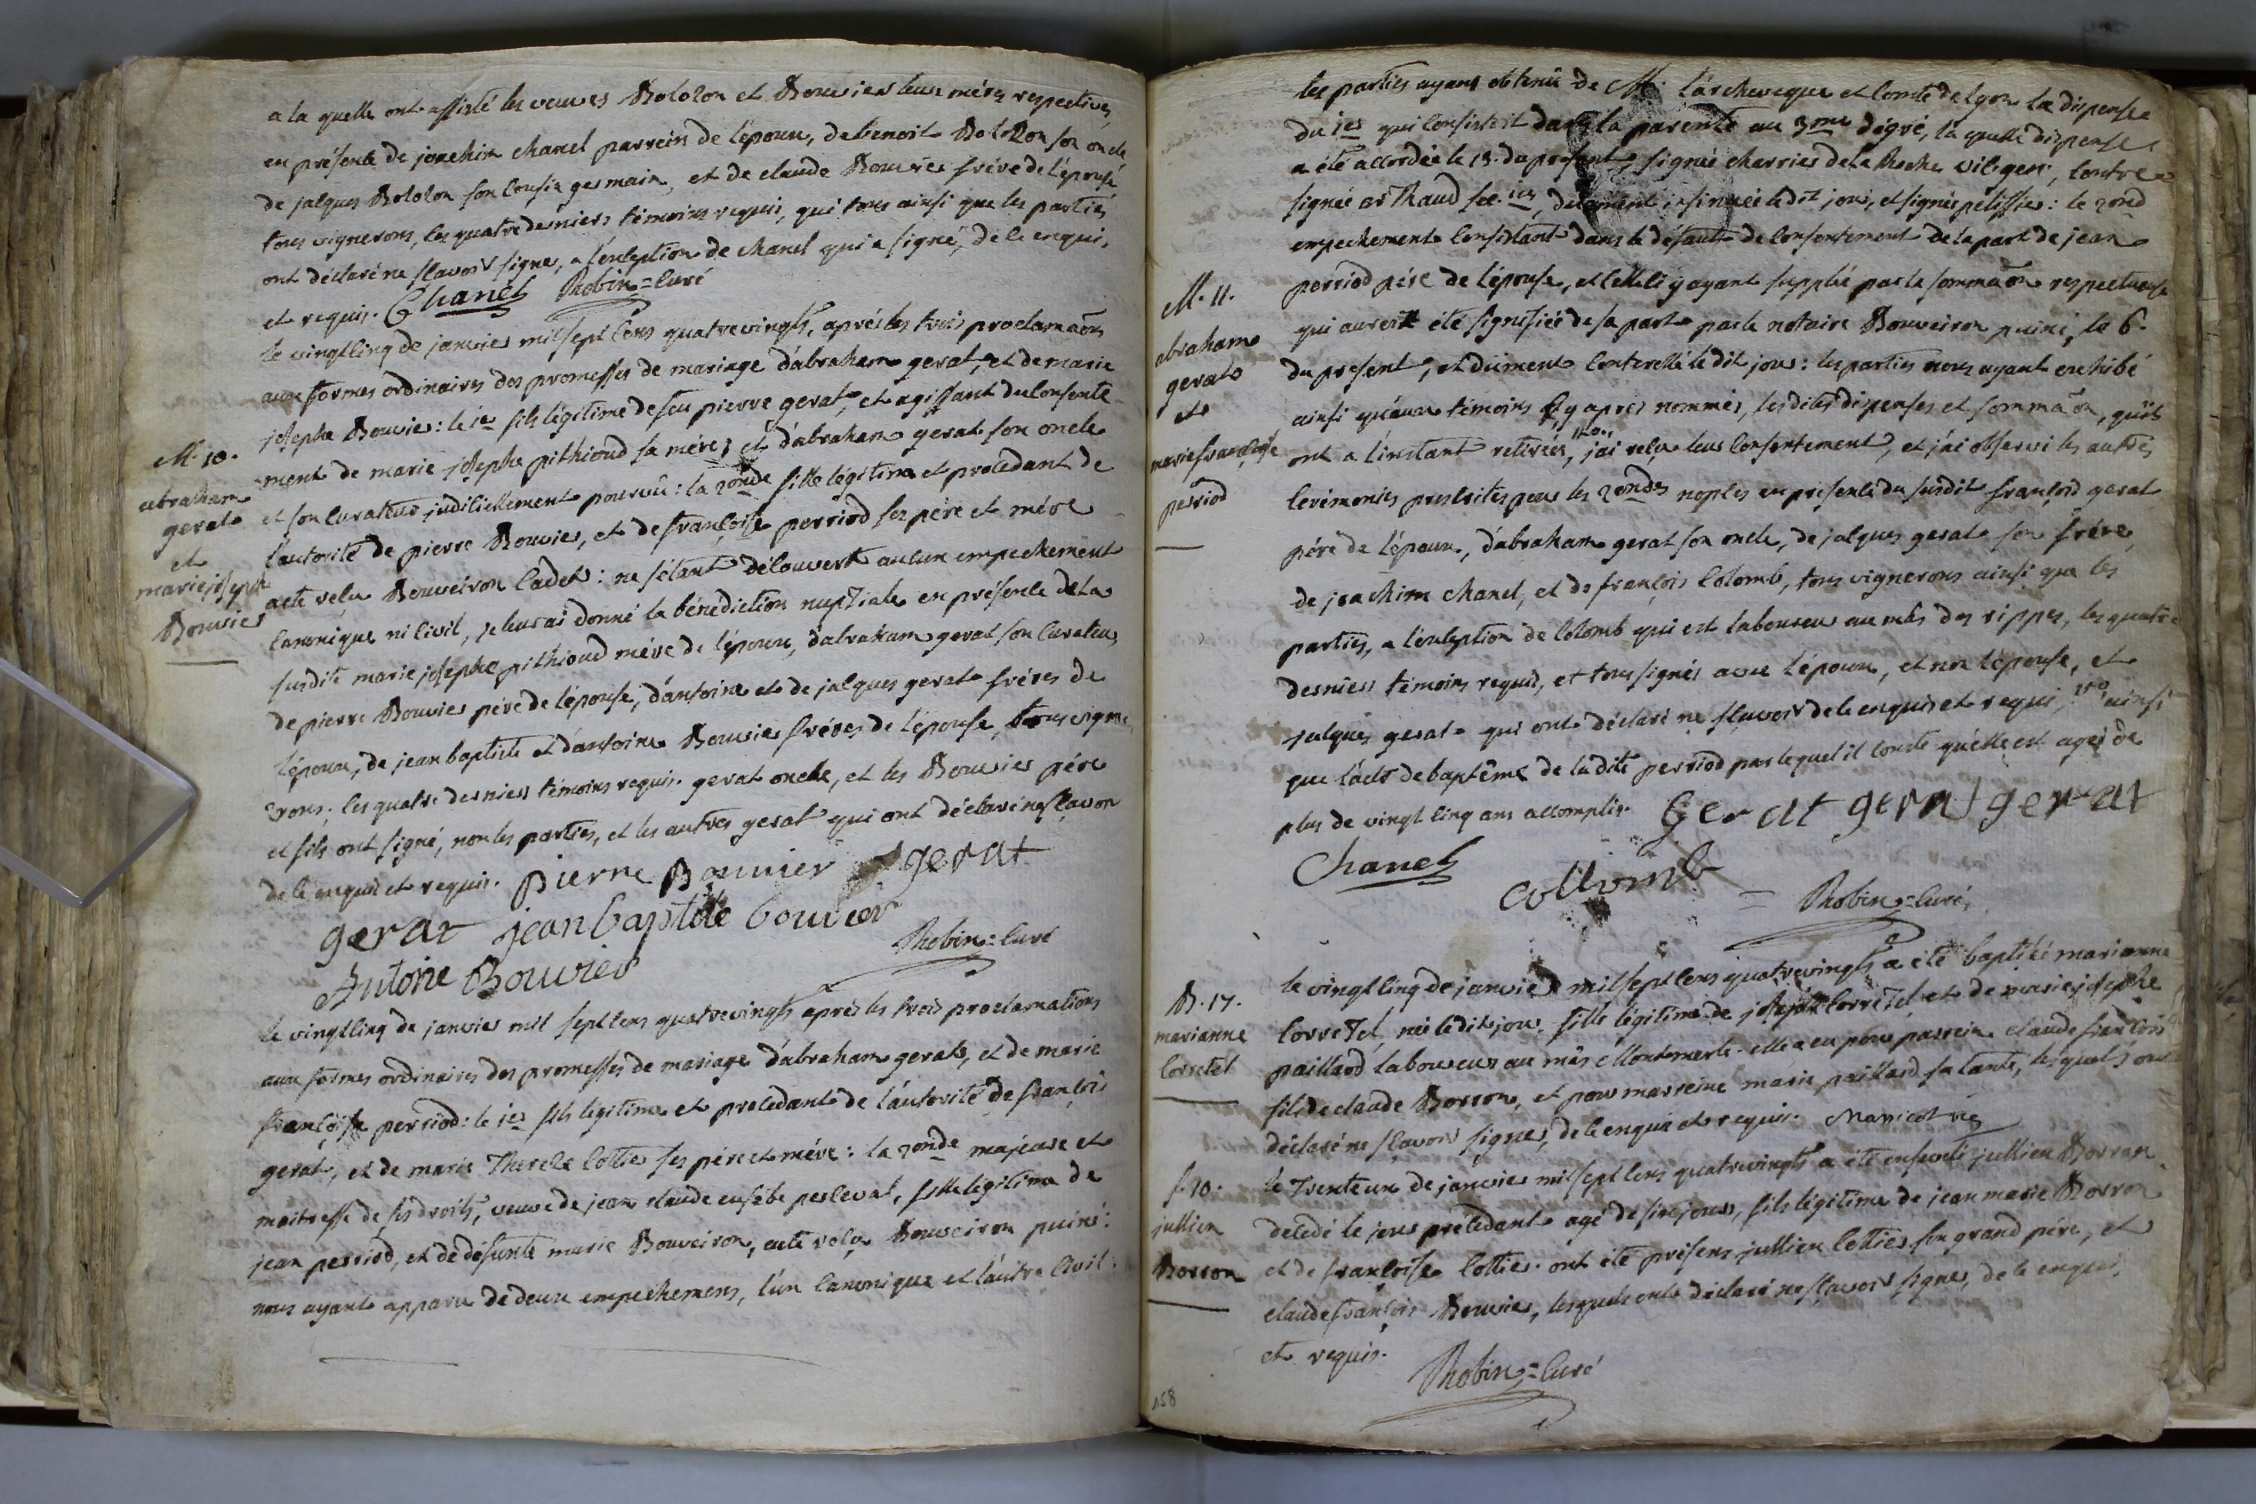 a la quelle ont assisté les veuves Bolozon et Bouvier leurs méres respectives,
en présence de joachim chanel parrein de l'époux, de benoit Bolozon son oncle
de jacques Bolozon son cousin germain, et de claude Bouvier frére de l'épouse
tous vignerons, les quatre derniers témoins requis, qui tous ainsi que les parties
ont déclaré ne sçavoir signer, a l'exception de chanel qui a signé, de ce enquis,
et requis. Chanel Robin=curé
le vingt cinq de janvier mil sept cens quatre vingts, aprés les trois proclamaõns
aux formes ordinaires des promesses de mariage d'abraham gerat, et de marie
M. 10.
abraham
gerat
et
marie josephe
Bouvier
josephe Bouvier: le 1er fils légitime de feu pierre gerat, et agissant du consente
ment de marie josephe pithioud sa mére, et d'abraham gerat son oncle
et son curateur judiciellement pourvû: la 2onde fille légitime et procédant de
l'autorité de pierre Bouvier, et de françoise perriod ses pére et mére
acte reçu Bouveiron cadet: ne s'étant découvert aucun empechement
canonique ni civil, je leur ai donné la bénédiction nuptiale en présence de la
susdite marie josephe pithioud mére de l'époux, d'abraham gerat son curateur,
de pierre Bouvier pére de l'épouse, d'antoine et de jacques gerat fréres de
l'époux, de jean baptiste et d'antoine Bouvier fréres de l'épouse, tous vigne
rons; les quatre derniers témoins requis. gerat oncle, et les Bouvier pére
et fils ont signé, non les parties, et les autres gerat qui ont déclaré ne sçavoir
de ce enquis et requis. Pierre Bouvier gerat
gerat jean baptiste bouvier
Antoine Bouvier Robin=curé
le vingt cinq de janvier mil sept cens quatre vingts aprés les trois proclamations
aux formes ordinaires des promesses de mariage d'abraham gerat, et de marie
françoise perriod: le 1er fils légitime et procédant de l'autorité de françois
gerat, et de marie Thereze cottier ses pére et mére: la 2onde majeure et
maitresse de ses droits, veuve de jean claude eusebe perceval, fille légitime de
jean perriod, et de défunte marie Bouveiron, acte reçu Bouveiron puiné:
nous ayant apparu de deux empechemens, l'un canonique et l'autre civil:
les parties ayant obtenu de M. l'archeveque et comte de lyon la dispense
du 1er qui consistoit dans la parenté au 3me dégré, la quelle dispense
a été accordée le 13. du présent, signée charrier de la Roche vic. gen., contre
signée arthaud sec.ier, duement insinuée le dit jour, et signée pelisse: le 2ond
empechement consistant dans le défaut de consentement de la part de jean
M. 11.
abraham
gerat
et
marie françoise
perriod
perriod pére de l'épouse, et celle ci y ayant supplée par la sommaõn respectueuse
qui auroit été signifiée de sa part par le notaire Bouveiron puiné, le 6.
du présent, et duement controllé le dit jour: les parties nous ayant exhibé
ainsi qu'aux témoins cy apres nommés, les dites dispenses et sommaõn, qu'ils
ont a l'instant retirées, j'ai reçu leur consentement, et j'ai observé les autres
cérémonies prescrites pour les 2ondes noples en présence du susdit françois gerat
pére de l'époux, d'abraham gerat son oncle, de jacques gerat son frére,
de joachim chanel, et de françois colomb, tous vignerons ainsi que les
parties, a l'exception de colomb qui est laboureur au mâs des rippes, les quatre
derniers témoins requis, et tous signés avec l'époux, et non l'épouse, et
jacques gerat qui ont déclaré ne sçavoir de ce enquis et requis, ainsi
que l'acte de baptême de la dite perriod par lequel il conste qu'elle est agée de
plus de vingt cinq ans accomplis. Gerat gerat gerat
Chanel
collomb Robin=curé,
B. 17.
marianne
corretel
le vingt cinq de janvier mil sept cens quatre vingts a été baptisé marianne
corretel, née le dit jour, fille légitime de joseph corretel et de marie josephe
paillard laboureur au mâs Montmerle. elle a eu pour parrein claude françois
fils de claude Borron, et pour marreine marie paillard sa tante, lesquels ont
déclaré ne sçavoir signer, de ce enquis et requis. Maricot vic
f. 10.
jullien
Borron
le trente un de janvier mil sept cens quatre vingts a été enseveli jullien Borron
décédé le jour précédant agé de six jours, fils légitime de jean marie Borron
et de françoise cottier. ont été présens jullien cottier son grand pére, et
claude françois Bouvier, lesquels ont déclaré ne sçavoir signer, de ce enquis,
et requis.
Robin=curé
158